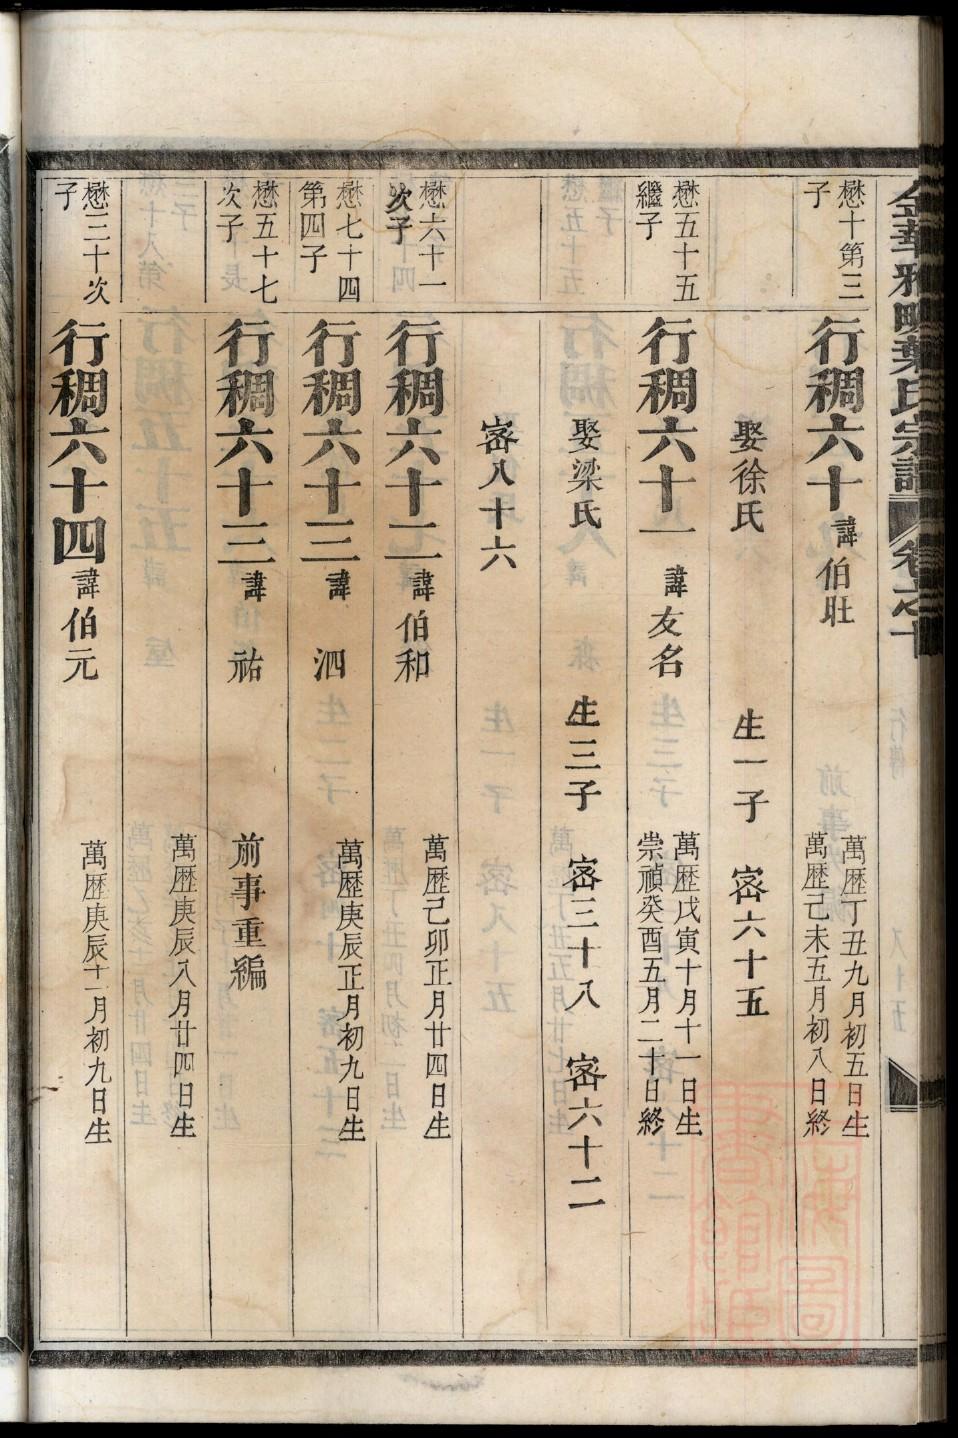 金華雅畈葉氏宗譜 卷之十
懋十第三子
行稠六十 諱伯壯
萬歷丁丑九月初五日生
萬歷己未五月初八日終
娶徐氏 生一子 密六十五
懋五十五繼子
行稠六十一 諱友名
萬歷戊寅十月十一日生
崇禎癸酉五月二十日終
娶梁氏 生三子 密三十八 密六十二
密八十六
懋六十一次子
行稠六十二 諱伯和
萬歷己卯正月廿四日生
懋七十四第四子
行稠六十三 諱泗
萬歷庚辰正月初九日生
懋五十七次子
行稠六十三 諱祐
前事重編
萬歷庚辰八月廿四日生
懋三十次子
行稠六十四 諱伯元
萬歷庚辰十一月初九日生